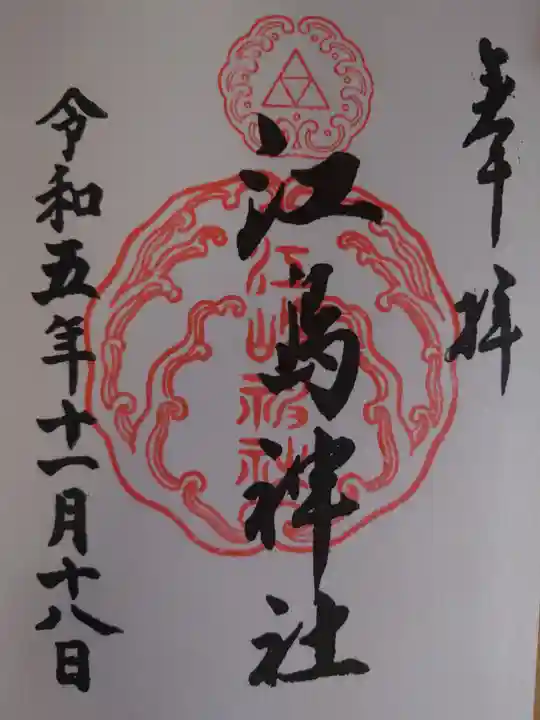 奉拝
江島神社
令和五年十一月十八日